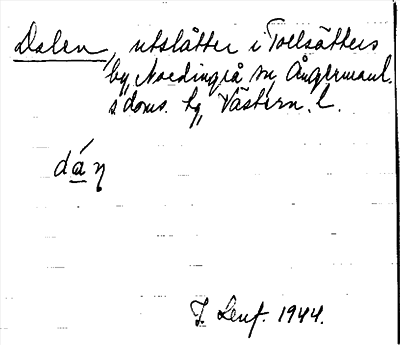 Dalen, utslåtter i Tollsätters
by, Nordingrå sn, Ångermanl.
s doms. hg, Västern. l.
dáη
J. Lenf. 1944.